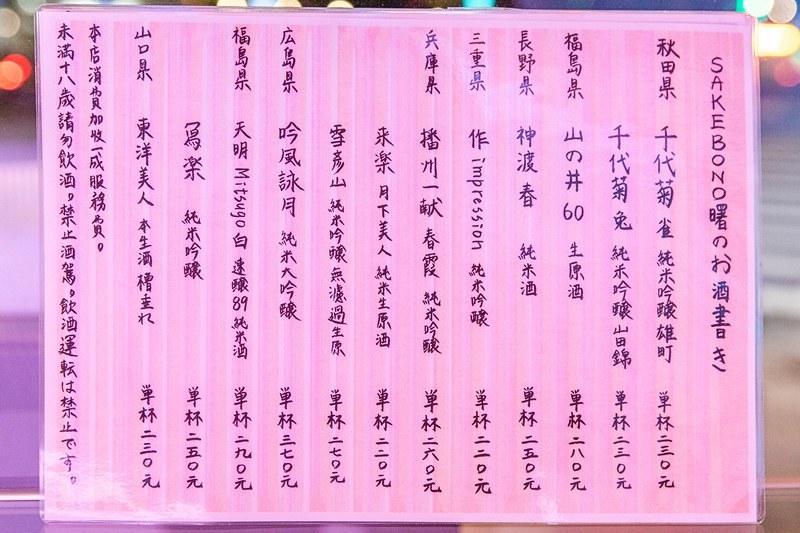 SAKEBONO曙のお酒書き
秋田県 千代菊 雀 純米吟醸雄町 単杯二三〇元
千代菊 兔 純米吟醸山田錦 単杯二三〇元
福島県 山の井60 生原酒 単杯二八〇元
長野県 神渡 春 純米酒 単杯二五〇元
三重県 作 impression 純米吟醸 単杯二二〇元
兵庫県 播州一献 春霞 純米吟醸 単杯二六〇元
来楽 月下美人 純米生原酒 単杯二二〇元
雪彦山 純米吟醸無濾過生原 単杯二七〇元
広島県 吟風詠月 純米大吟醸 単杯三七〇元
福島県 天明 Mitsugo 白 速醸89 純米酒 単杯二九〇元
冩楽 純米吟醸 単杯二五〇元
山口県 東洋美人 本生酒 槽垂れ 単杯二三〇元
本店消費加收一成服務費。
未滿十八歲請勿飲酒。禁止酒駕。飲酒運転は禁止です。